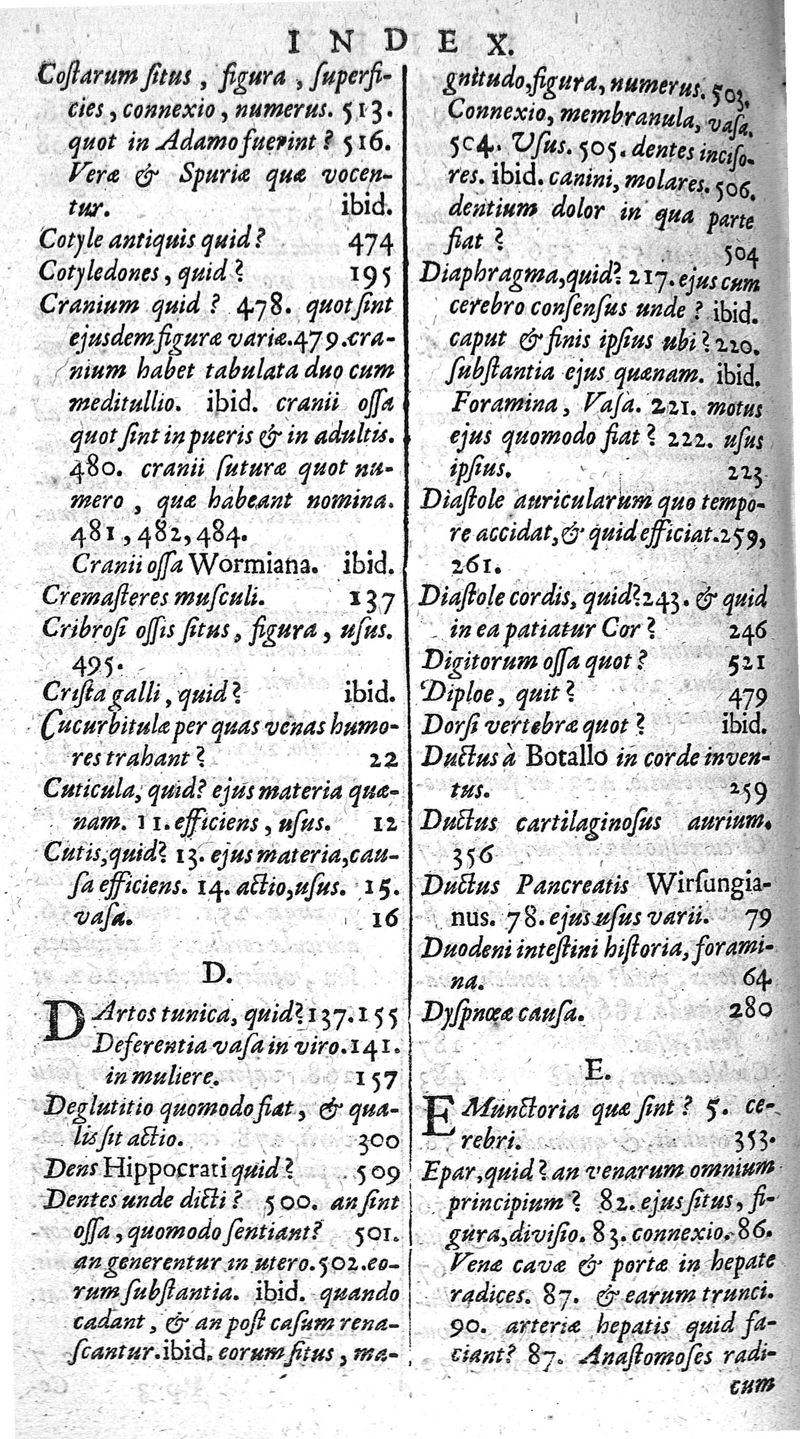 INDEX.
Coſtarum ſitus, figura, ſuperfi-
cies, connexio, numerus. 513.
quot in Adamo fuerint? 516.
Veræ & Spuriæ quæ vocen-
tur. ibid.
Cotyle antiquis quid? 474
Cotyledones, quid? 195
Cranium quid? 478. quot ſint
ejusdem figuræ variæ. 479. cra-
nium habet tabulata duo cum
meditullio. ibid. cranii oſſa
quot ſint in pueris & in adultis.
480. cranii ſuturæ quot nu-
mero, quæ habeant nomina.
481, 482, 484.
Cranii oſſa Wormiana. ibid.
Cremaſteres muſculi. 137
Cribroſi oſſis ſitus, figura, uſus.
495.
Criſta galli, quid? ibid.
Cucurbitulæ per quas venas humo-
res trahant? 22
Cuticula, quid? ejus materia quæ-
nam. 11. efficiens, uſus. 12
Cutis, quid? 13. ejus materia, cau-
ſa efficiens. 14. actio, uſus. 15.
vaſa. 16
D.
DArtos tunica, quid? 137. 155
Deferentia vaſa in viro. 141.
in muliere. 157
Deglutitio quomodo fiat, & qua-
lis ſit actio. 300
Dens Hippocrati quid? 509
Dentes unde dicti? 500. an ſint
oſſa, quomodo ſentiant? 501.
an generentur in utero. 502. eo-
rum ſubſtantia. ibid. quando
cadant, & an poſt caſum rena-
ſcantur. ibid. eorum ſitus, ma-
gnitudo, figura, numerus. 503.
Connexio, membranula, vaſa.
504. Uſus. 505. dentes inciſo-
res. ibid. canini, molares. 506.
dentium dolor in qua parte
fiat? 504
Diaphragma, quid? 217. ejus cum
cerebro conſenſus unde? ibid.
caput & finis ipſius ubi? 220.
ſubſtantia ejus quænam. ibid.
Foramina, Vaſa. 221. motus
ejus quomodo fiat? 222. uſus
ipſius. 223
Diaſtole auricularum quo tempo-
re accidat, & quid efficiat. 259,
261.
Diaſtole cordis, quid? 243. & quid
in ea patiatur Cor? 246
Digitorum oſſa quot? 521
Diploe, quit? 479
Dorſi vertebræ quot? ibid.
Ductus à Botallo in corde inven-
tus. 259
Ductus cartilaginoſus aurium.
356
Ductus Pancreatis Wirſungia-
nus. 78. ejus uſus varii. 79
Duodeni inteſtini hiſtoria, forami-
na. 64
Dyſpnœæ cauſa. 280
E.
EMunctoria quæ ſint? 5. ce-
rebri. 353.
Epar, quid? an venarum omnium
principium? 82. ejus ſitus, fi-
gura, diviſio. 83. connexio. 86.
Venæ cavæ & portæ in hepate
radices. 87. & earum trunci.
90. arteriæ hepatis quid fa-
ciant? 87. Anaſtomoſes radi-
cum